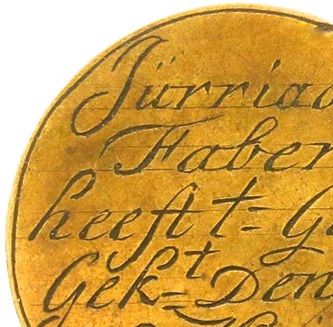 Jürriaa
Faber
heeft t= G
Gek=t Den